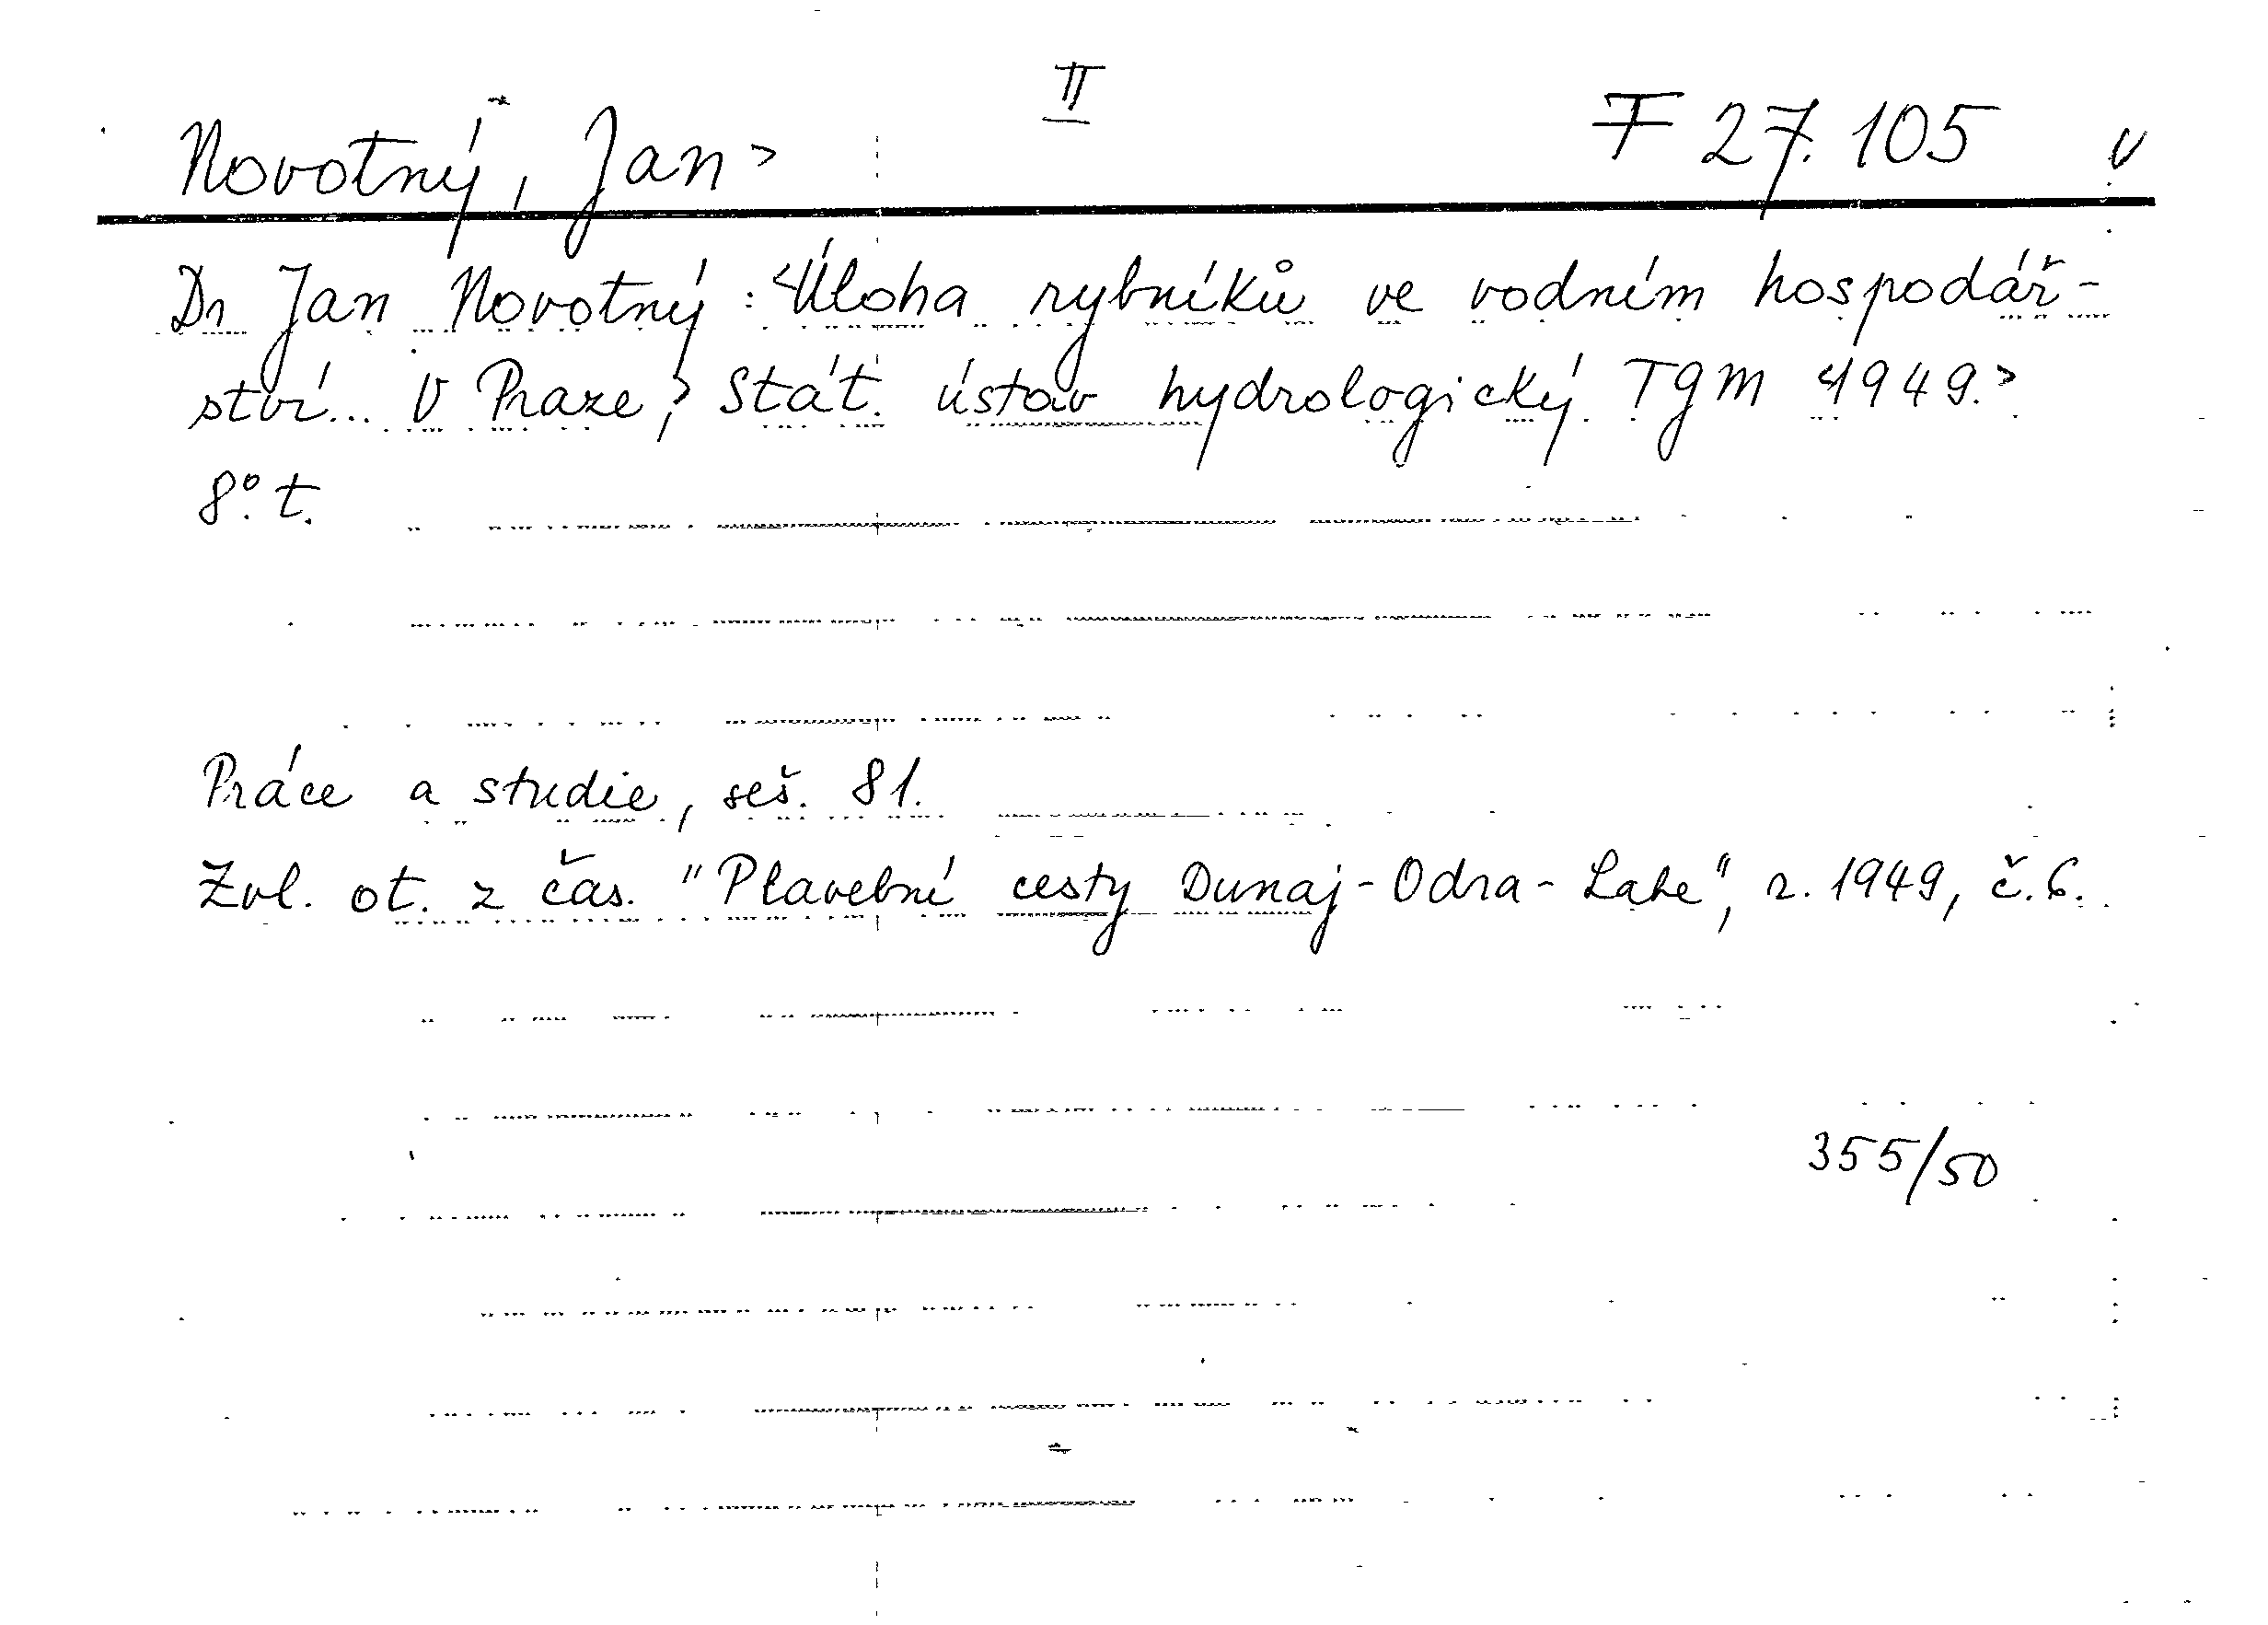 II
Novotný, Jan> F 27.105 v
Dr Jan Novotný: <Úloha rybníků ve vodním hospodář-
ství... V Praze,> Stát. ústav hydrologický TGM <1949.>
8°. t.
Práce a studie, seš. 81.
Zvl. ot. z čas. "Plavební cesty Dunaj-Odra-Labe", r. 1949, č.6.
355/50